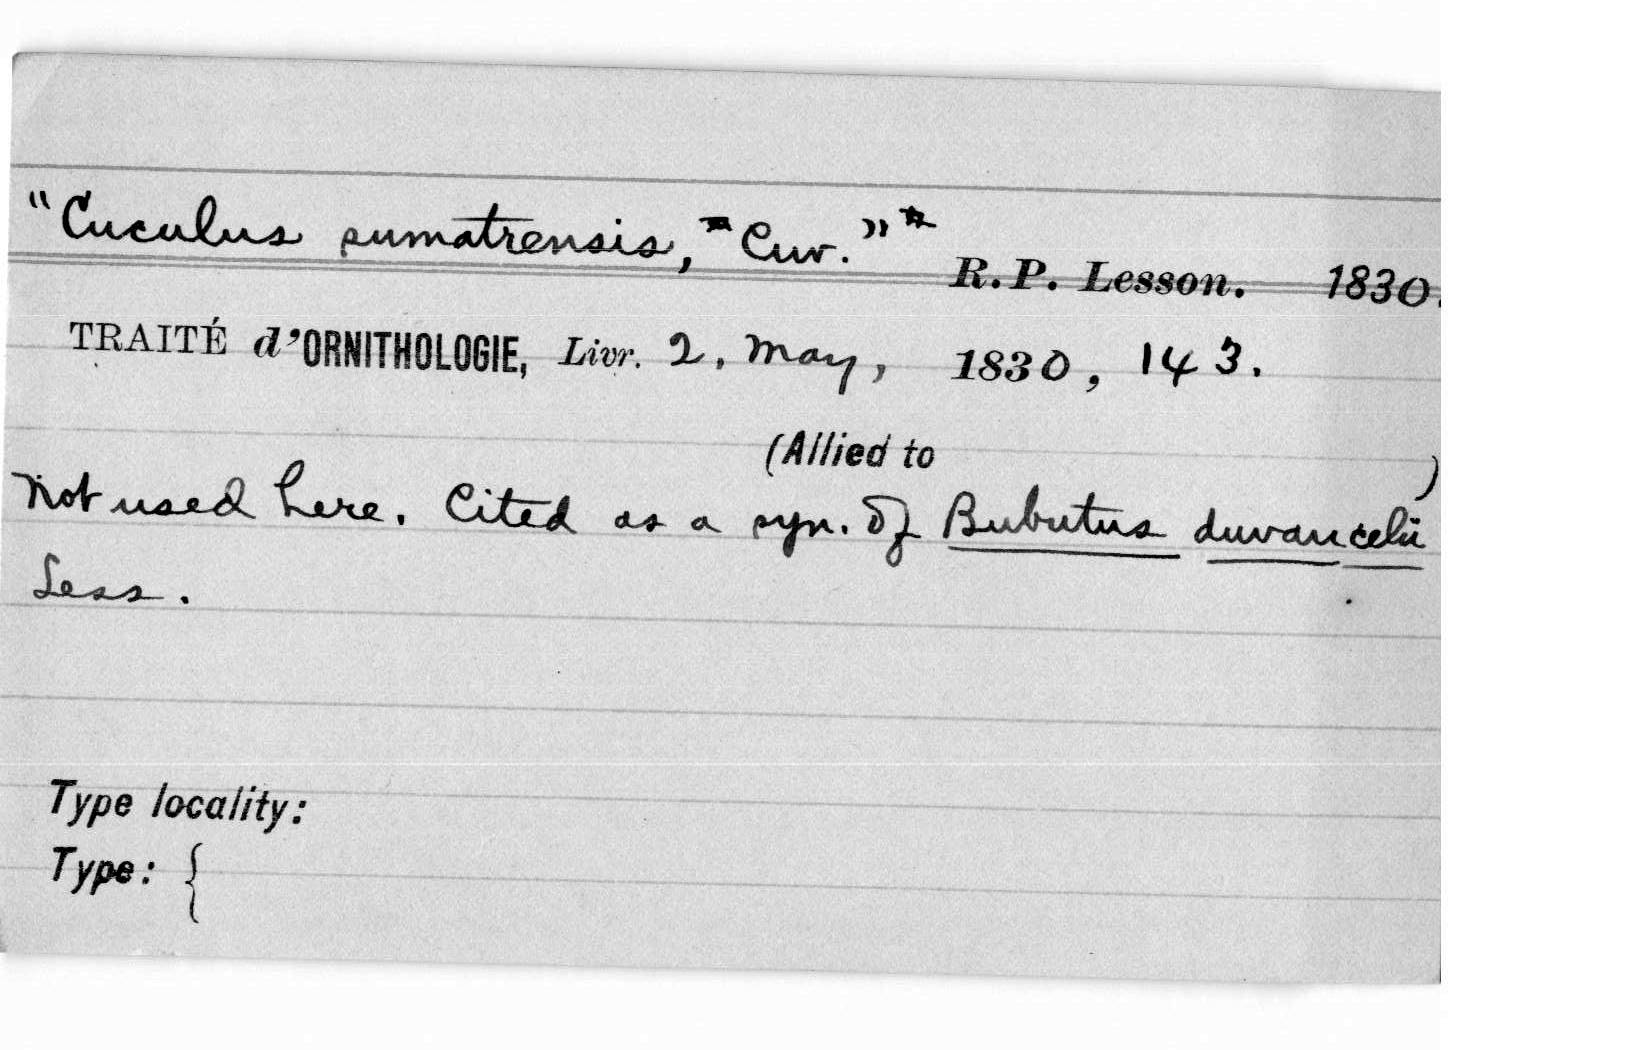 "Cuculus sumatrensis, "Cuv."* R.P. Lesson. 1830.
TRAITÉ d'ORNITHOLOGIE, Livr. 2, May, 1830, 143.
(Allied to )
Not used here. Cited as a syn. of Bubutus duvaucelii
Less.
Type locality:
Type: {